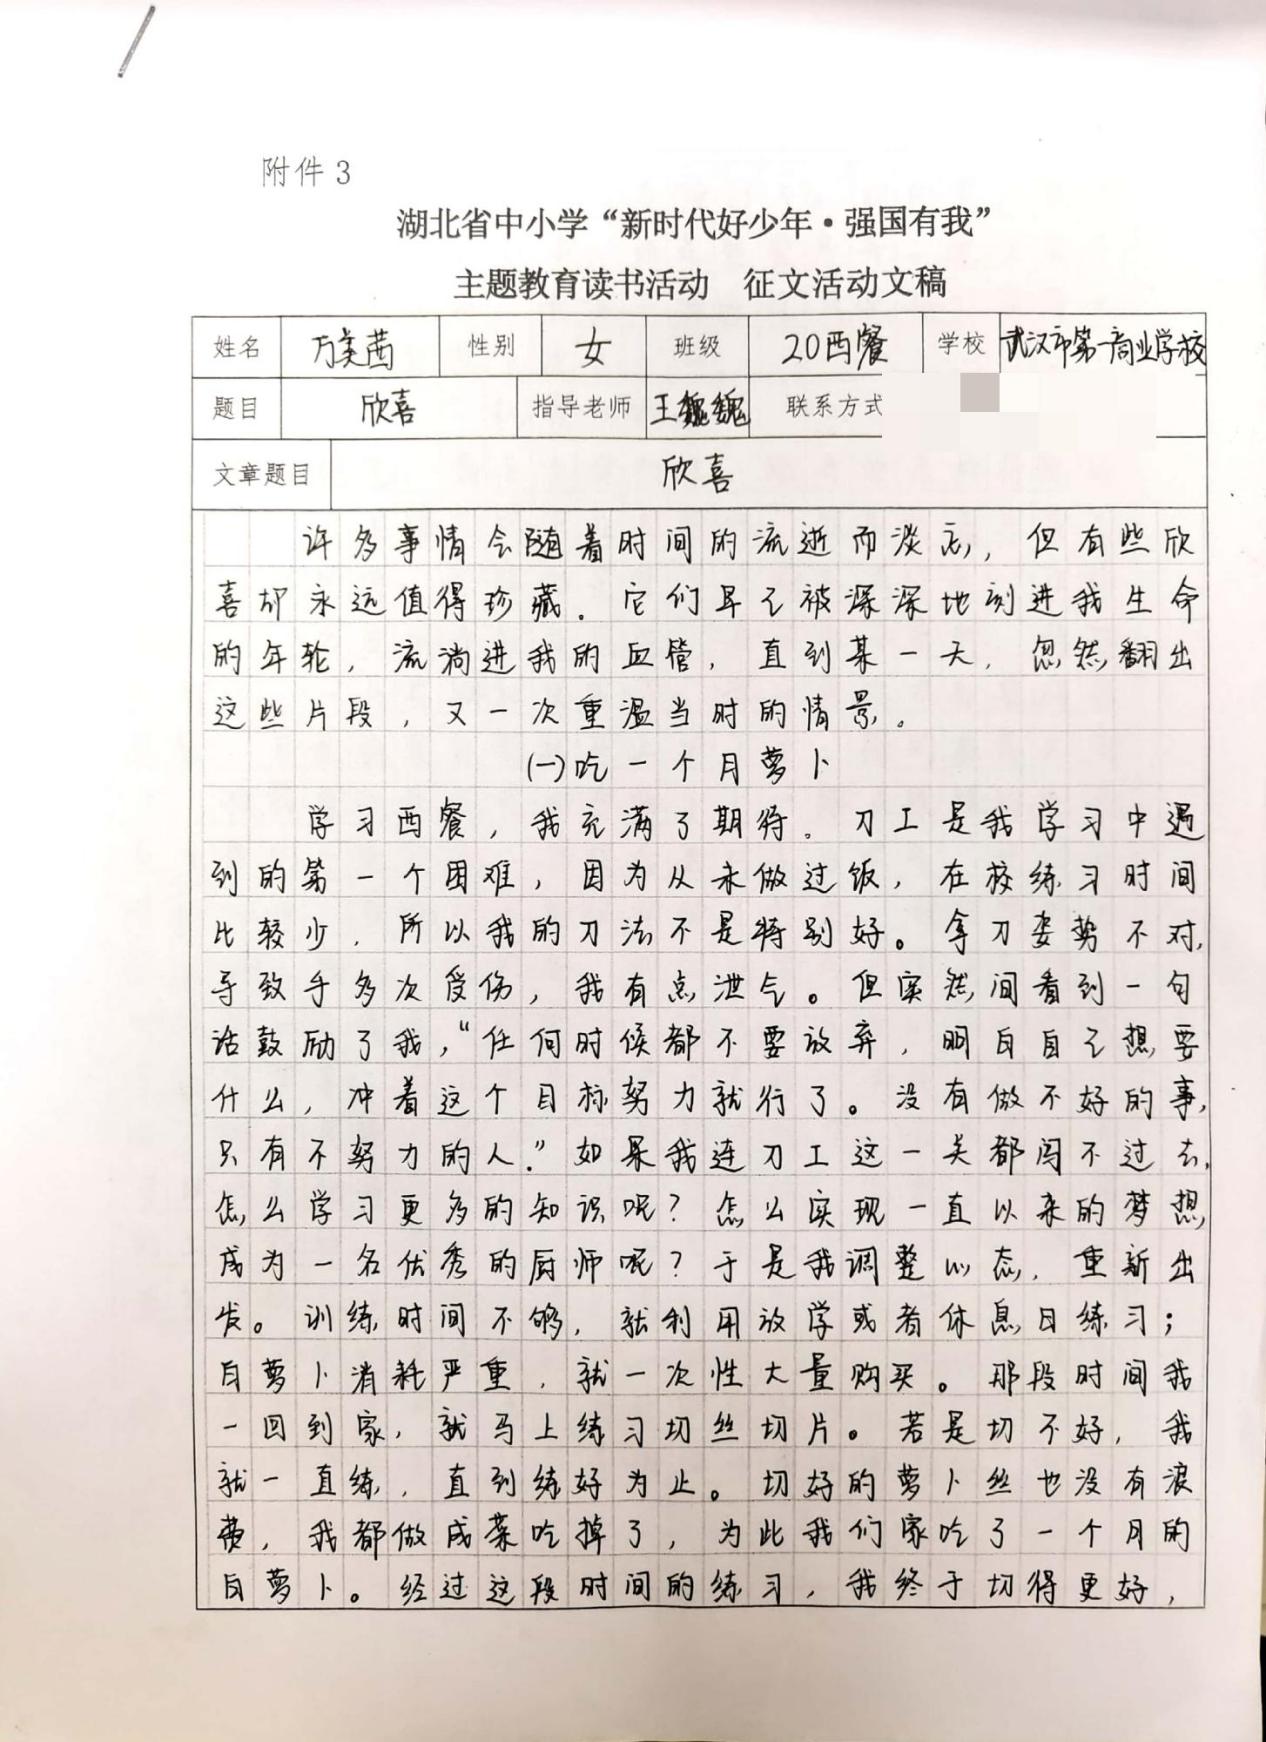 附件3
湖北省中小学“新时代好少年·强国有我”
主题教育读书活动 征文活动文稿
姓名 万美茜 性别 女 班级 20西餐 学校 武汉市第一商业学校
题目 欣喜 指导老师 王巍巍 联系方式
文章题目 欣喜
许多事情会随着时间的流逝而淡忘，但有些欣
喜却永远值得珍藏。它们早已被深深地刻进我生命
的年轮，流淌进我的血管，直到某一天，忽然翻出
这些片段，又一次重温当时的情景。
(一)吃一个月萝卜
学习西餐，我充满了期待。刀工是我学习中遇
到的第一个困难，因为从未做过饭，在校练习时间
比较少，所以我的刀法不是特别好。拿刀姿势不对，
导致手多次受伤，我有点泄气。但突然间看到一句
话鼓励了我，“任何时候都不要放弃，明白自己想要
什么，冲着这个目标努力就行了。没有做不好的事，
只有不努力的人。”如果我连刀工这一关都闯不过去，
怎么学习更多的知识呢？怎么实现一直以来的梦想，
成为一名优秀的厨师呢？于是我调整心态，重新出
发。训练时间不够，就利用放学或者休息日练习；
白萝卜消耗严重，就一次性大量购买。那段时间我
一回到家，就马上练习切丝切片。若是切不好，我
就一直练，直到练好为止。切好的萝卜丝也没有浪
费，我都做成菜吃掉了，为此我们家吃了一个月的
白萝卜。经过这段时间的练习，我终于切得更好，